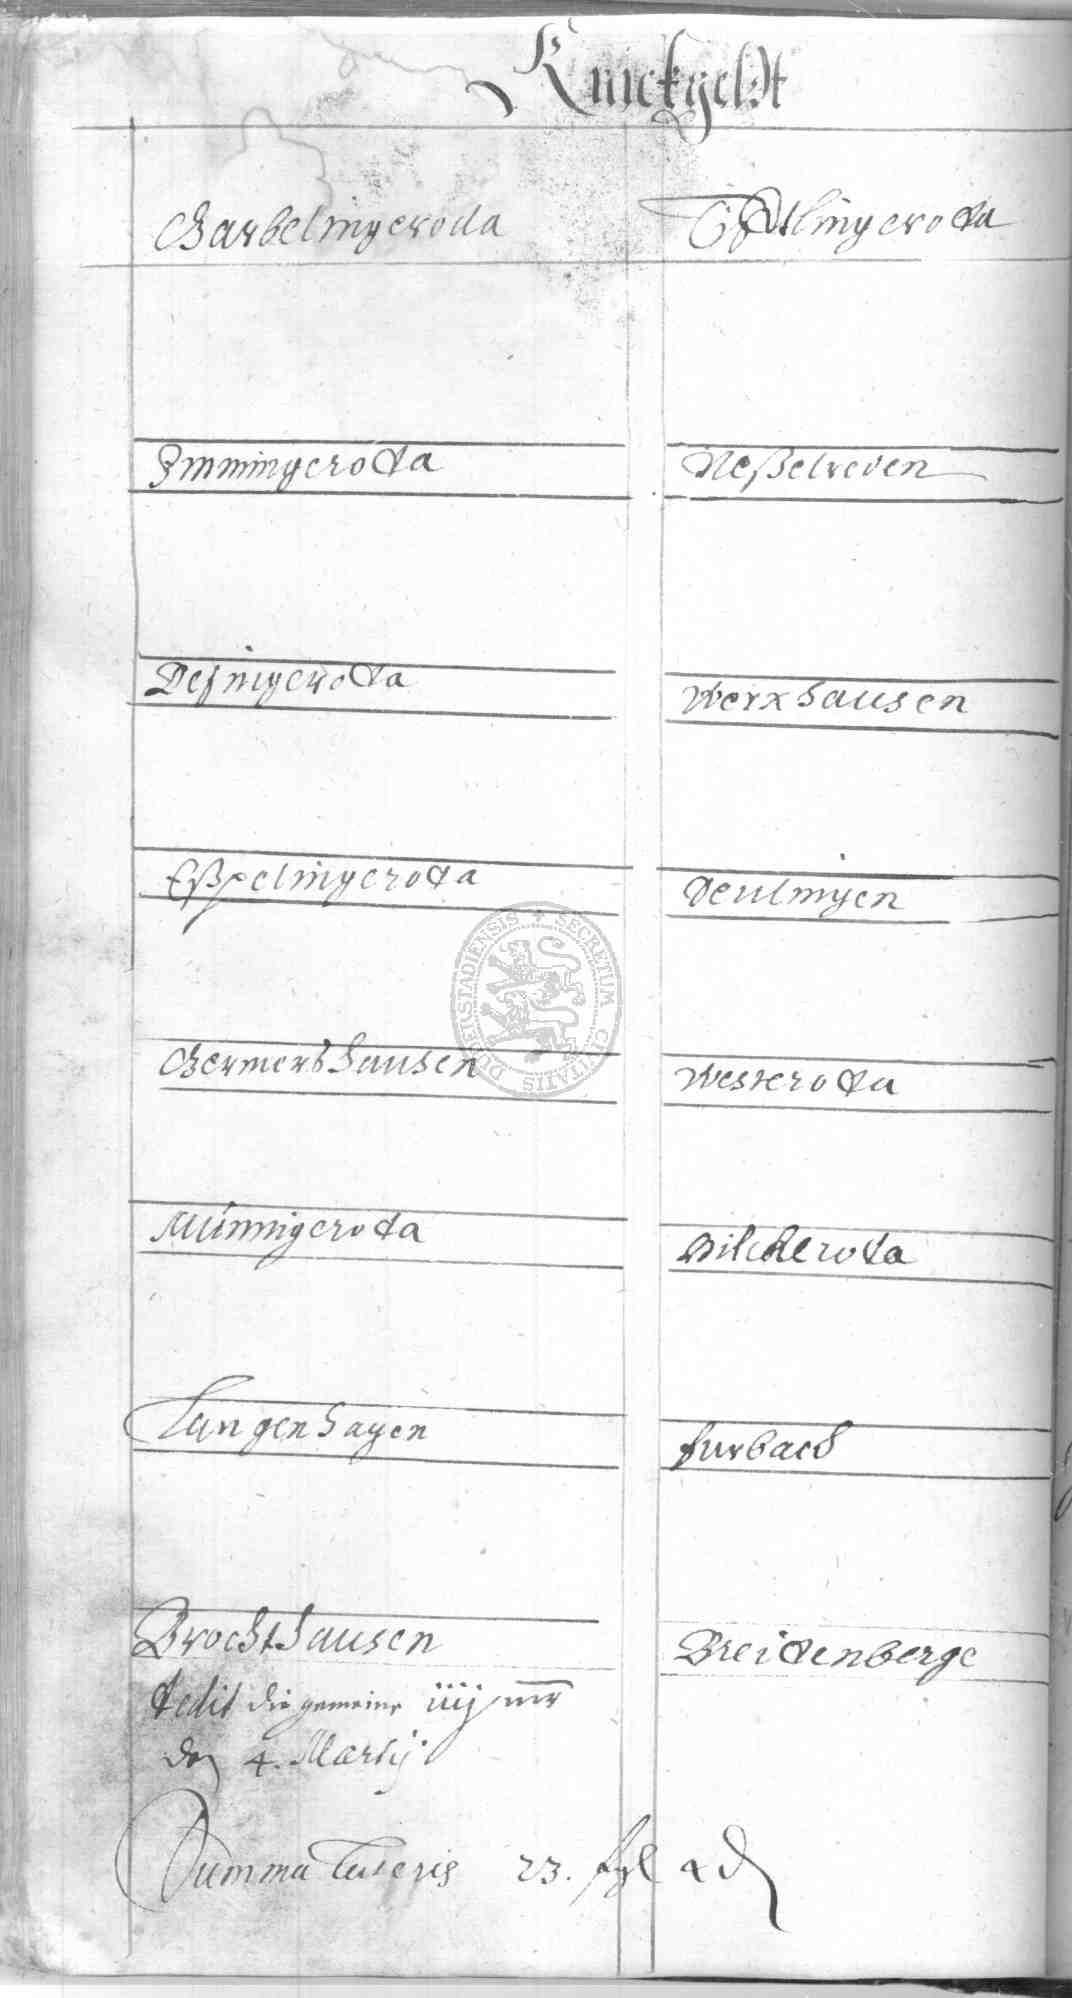 Knickgeldt
Garbelingeroda
Tifftlingeroda
Immingeroda
Neßelreden
Desingeroda
Werxhausen
Eßpelingeroda
Teulingen
Germershausen
Westeroda
Minnigeroda
Bilckeroda
Langenhagen
Furbach
Brochthausen
Breidenberge
dedit die gemeine iiij mr
den 4. Martij.
Summa lateris 23. fgl 4 d
DUDERSTADIENSIS * SECRETUM CIVITATIS